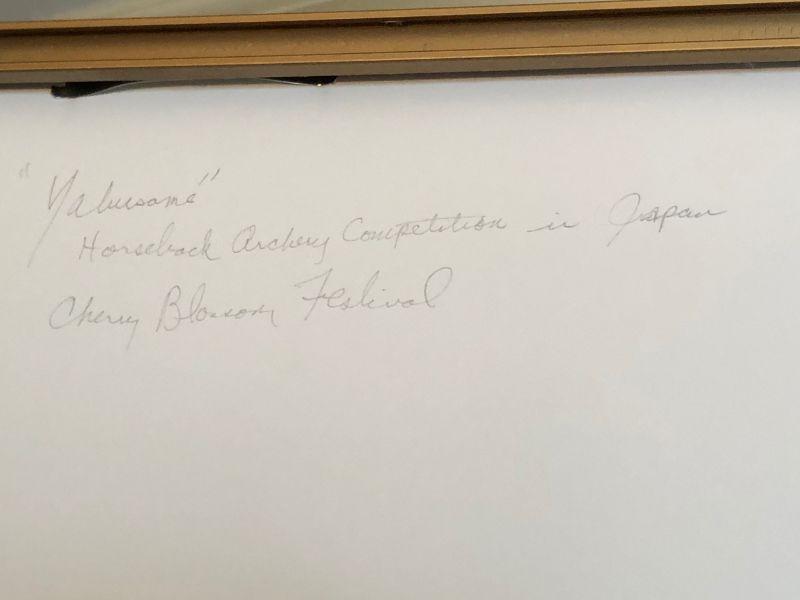 "Yabusamé"
Horseback Archery Competition in Japan
Cherry Blossom Festival